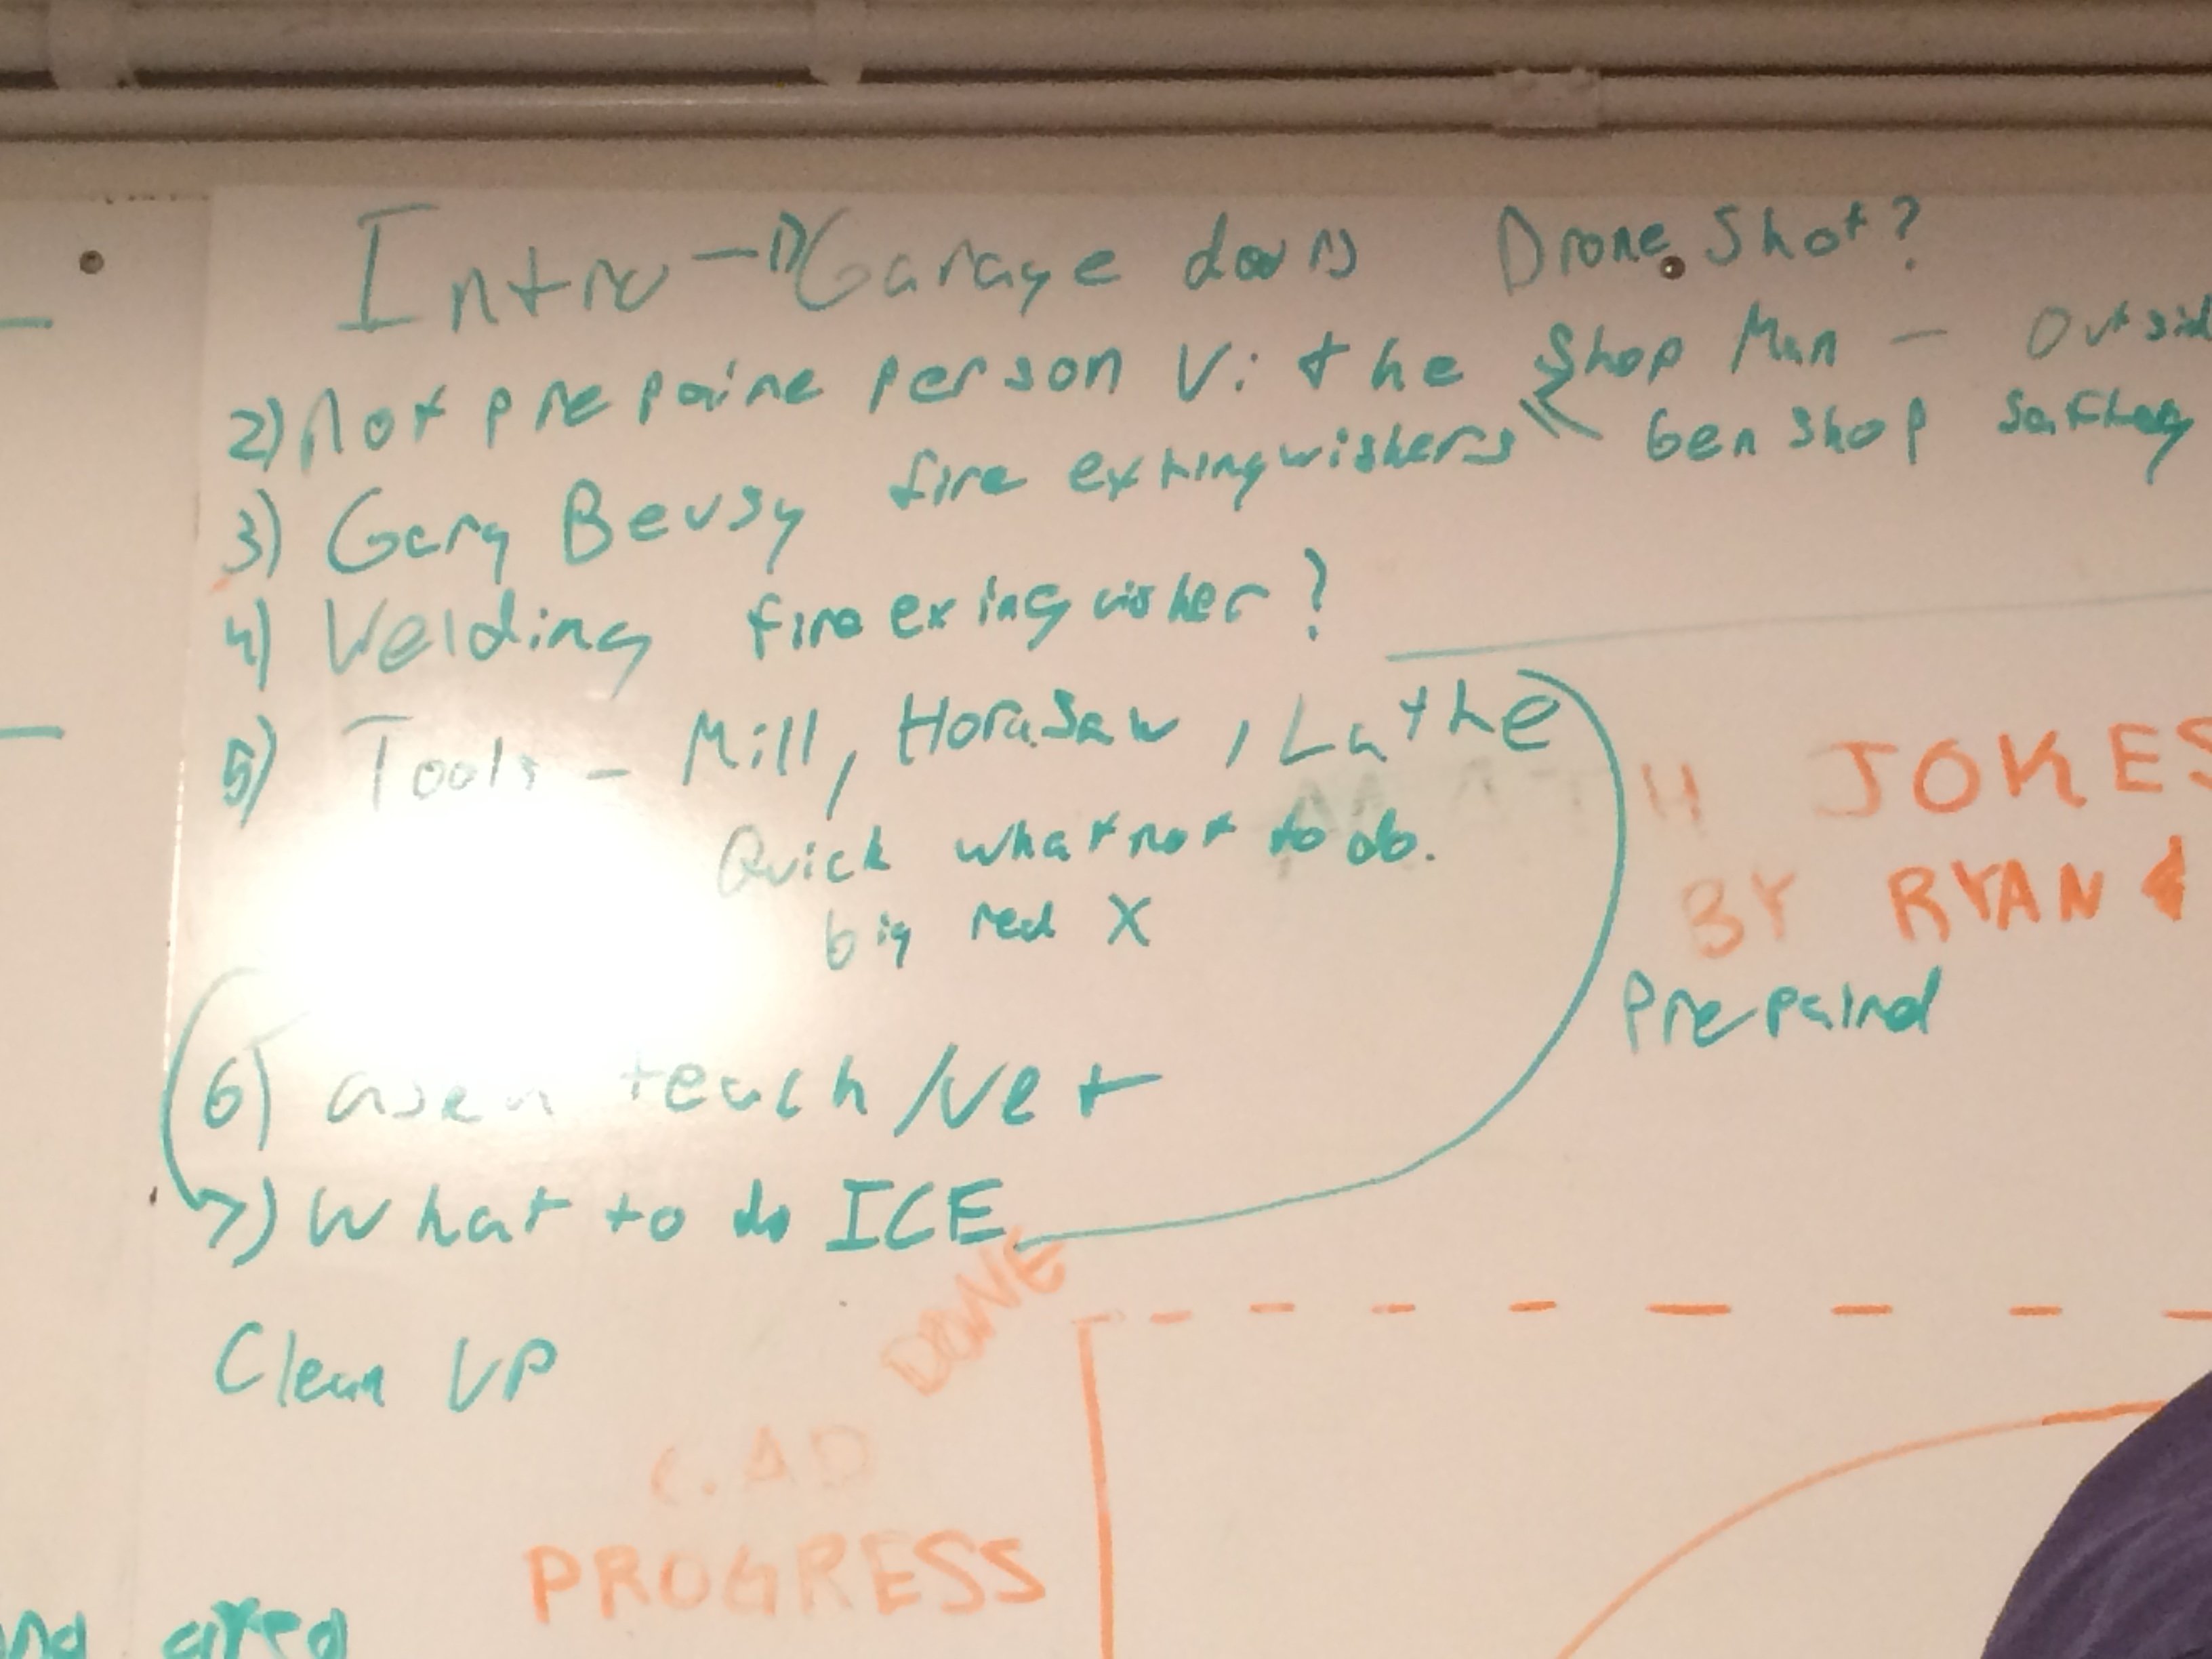 Intro → Garage doors Drone Shot?
2) Not prepaire person V: the Shop Man - Outsid
Gen Shop Safthey
3) Gary Beusy fire extingwishers
4) Welding fire exinguisher?
5) Tools - Mill, Hora.Saw, Lathe
Quick what not to do.
big red X
MATH JOKES
BY RYAN &
Prepaird
6) teach /Vet
7) What to do ICE
DONE
Clean UP
CAD
PROGRESS
area